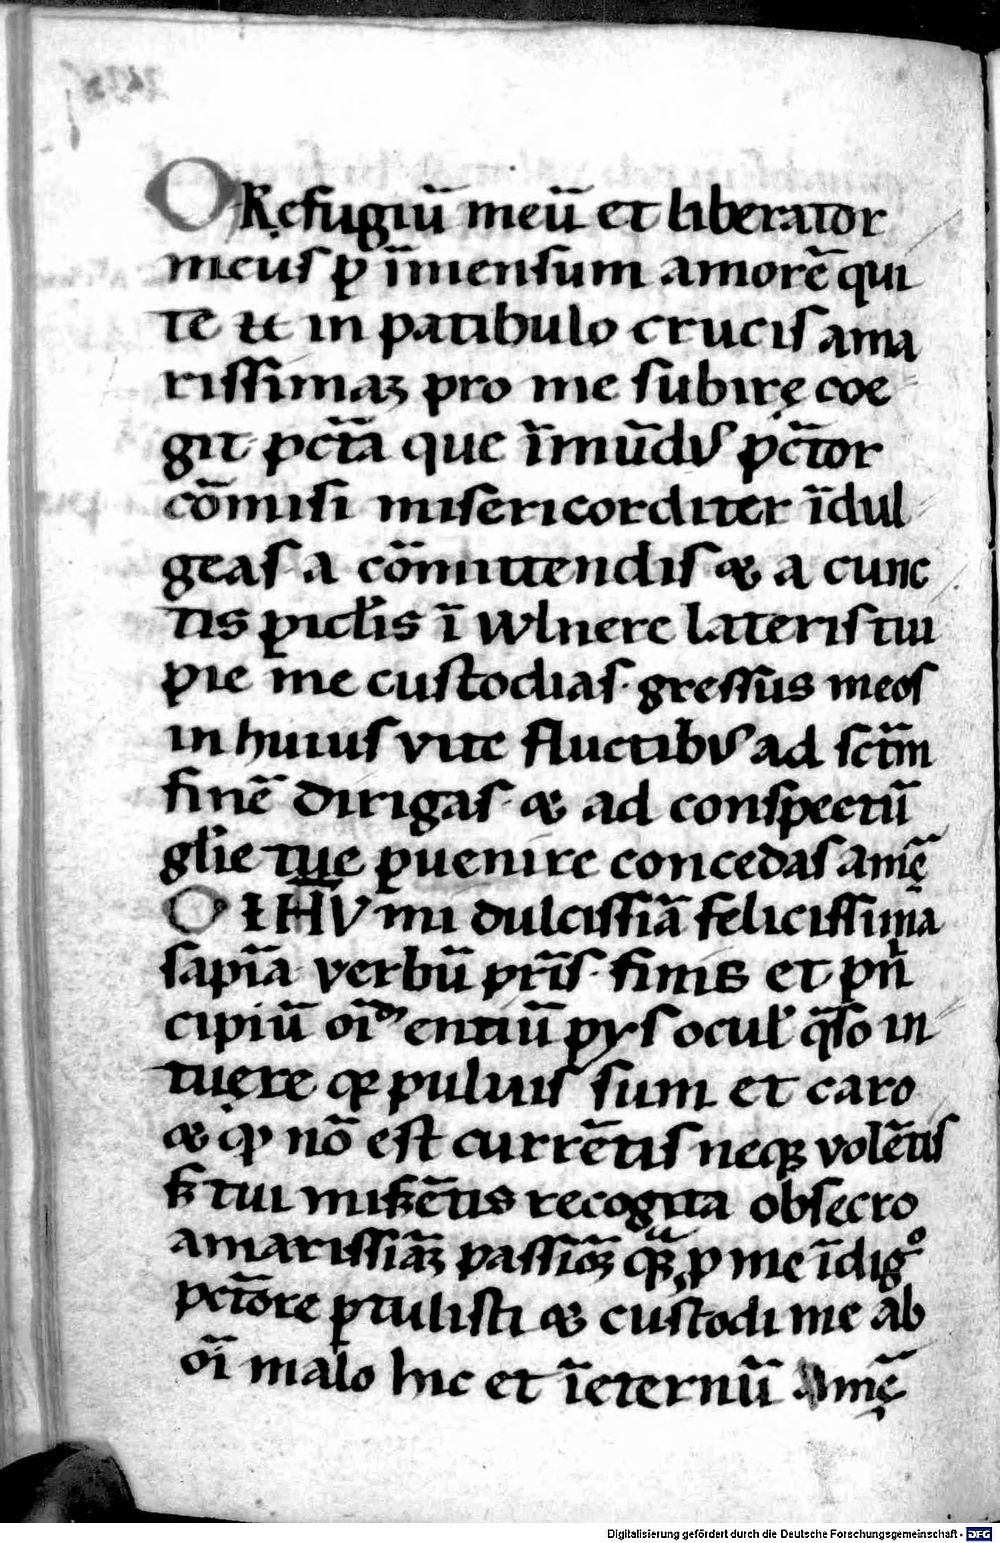 O Refugiū meū et liberator
meus ꝑ īmensum amorē qui
te et in patibulo crucis ama
rissimaꝫ pro me subirę coe
git pctā que īmūdꝰ pctōr
cōmisi misericorditer īdul
geas a cōmittendis & a cunc
tis ꝑiclis ī wlnere lateris tui
pie me custodias· gressus meos
in huius vite fluctibꝰ ad sctm̄
finē dirigas· & ad conspectū
glīe tue ꝑuenire concedas amē
O IHV mi dulcissīa felicissima
sapīa verbū pr̄is· finis et prī
cipiū oīꝫ entiū pys ocul' q̄so in
tuęre ꝙ puluis sum et caro
& ꝙ nō est currētis neqꝫ volētis
sꝫ tui misētis recogita obsecro
amarissīaꝫ passiōꝫ quaꝫ ꝓ me īdigº
pctōre ꝑtulisti & custodi me ab
oī malo hic et ī eternū Amē
Digitalisierung gefördert durch die Deutsche Forschungsgemeinschaft - DFG